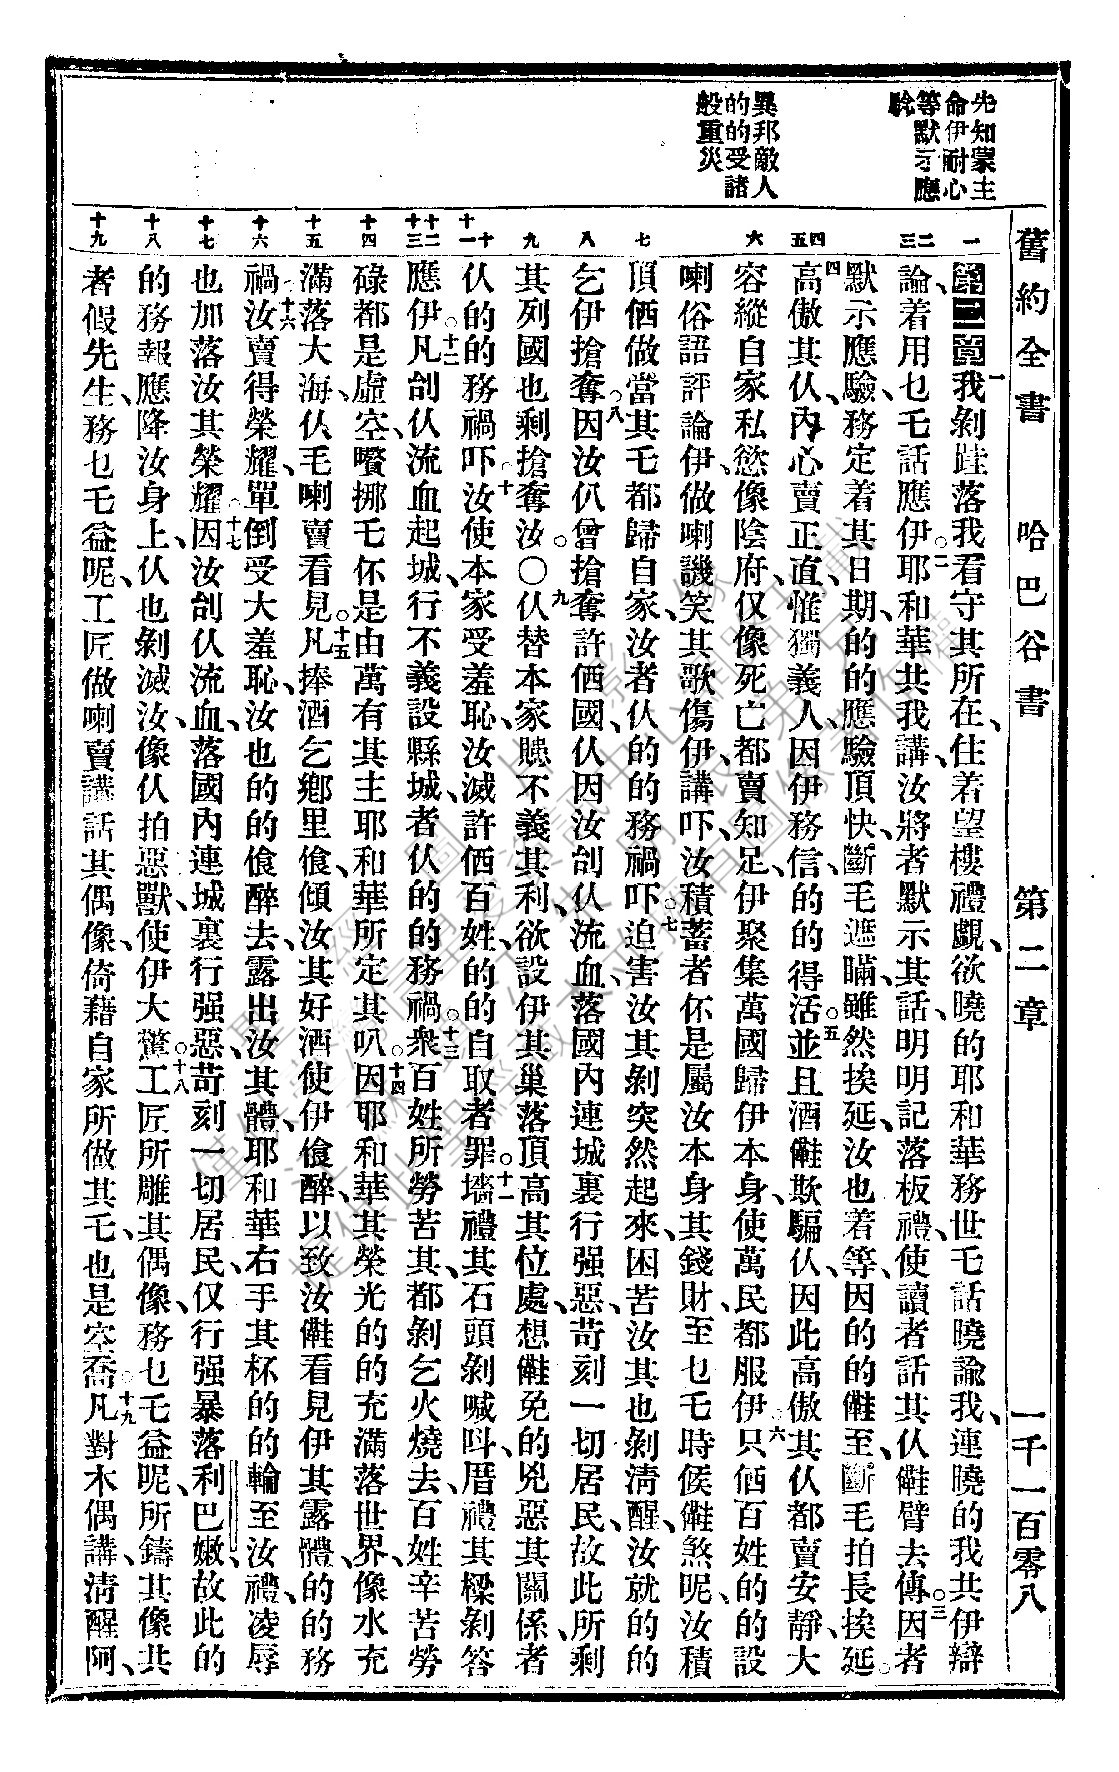 舊約全書 哈巴谷書 第二章 一千一百零八
先知蒙主
命伊耐心
等默示應
驗
異邦敵人
的的受諸
般重災
一
二
三
四
五
六
七
八
九
十
十一
十二
十三
十四
十五
十六
十七
十八
十九
第二章一我剝跬落我看守其所在、仹着望樓禮覷、欲曉的耶和華務世乇話曉諭我、連曉的我共伊辯
論着用乜乇話應伊○二耶和華共我講、汝將者默示其話、明明記落板禮、使讀者話其仈𣍐臂去傳○三因者
默示應驗、務定着其日期、的的應驗頂快、斷毛遮瞞、雖然挨延、汝也着等、因的的𣍐至、斷毛拍長挨延○
四高傲其仈、內心賣正直、惟獨義人、因伊務信、的的得活○五並且酒𣍐欺騙仈、因此高傲其仈、都賣安靜、大
容縱自家私慾、像陰府、仅像死亡、都賣知足、伊聚集萬國歸伊本身、使萬民都服伊○六只𠇗百姓的的設
喇俗語評論伊、做喇譏笑其歌傷伊、講吓、汝積蓄者伓是屬汝本身其錢財、至乜乇時候𣍐煞呢、汝積
頂𠇗做當其乇都歸自家、汝者仈的的務禍吓○七迫害汝其、剝突然起來、困苦汝其、也剝淸醒、汝就的的
乞伊搶奪○八因汝仈曾搶奪許𠇗國、仈因汝刣仈流血、落國內連城裏行强惡、苛刻一切居民、故此所剩
其列國也剩搶奪汝。○九仈替本家賺不義其利、欲設伊其巢落頂高其位處、想𣍐免的兇惡其關係、者
仈的的務禍吓○十汝使本家受羞恥、汝滅許𠇗百姓、的的自取者罪○十一墻禮其石頭剝喊呌、厝禮其樑剝答
應伊○十二凡刣仈流血起城、行不義設縣城者仈的的務禍○十三衆百姓所勞苦其、都剝乞火燒去、百姓辛苦勞
碌都是虛空、嚽挪乇伓是由萬有其主耶和華所定其叭○十四因耶和華其榮光的的充滿落世界、像水充
滿落大海、仈毛喇賣看見○十五凡捧酒乞鄉里飲、傾汝其好酒、使伊飲醉、以致汝𣍐看見伊其露體、的的務
禍○十六汝賣得榮耀、單倒受大羞恥、汝也的的飲醉去、露出汝其體、耶和華右手其杯的的輪至汝禮、凌辱
也加落汝其榮耀○十七因汝刣仈流血、落國內連城裏行强惡、苛刻一切居民、仅行强暴落利巴嫩、故此的
的務報應降汝身上、仈也剝滅汝、像仈拍惡獸、使伊大驚○十八工匠所雕其偶像、務乜乇益呢、所鑄其像共
者假先生、務乜乇益呢、工匠做喇賣講話其偶像、倚藉自家所做其乇、也是空喬○十九凡對木偶講、淸醒阿、